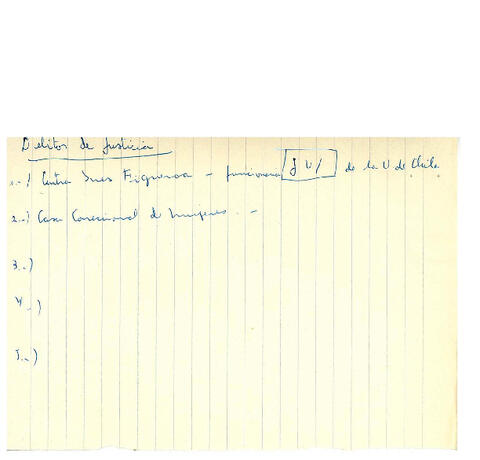 Delitos de Justicia
1.-) Contra Ines Figueroa - funcionaria J U / de la U de Chile.
2.-) Casa Correccional de Mujeres. -
3.-)
4.-)
5.-)